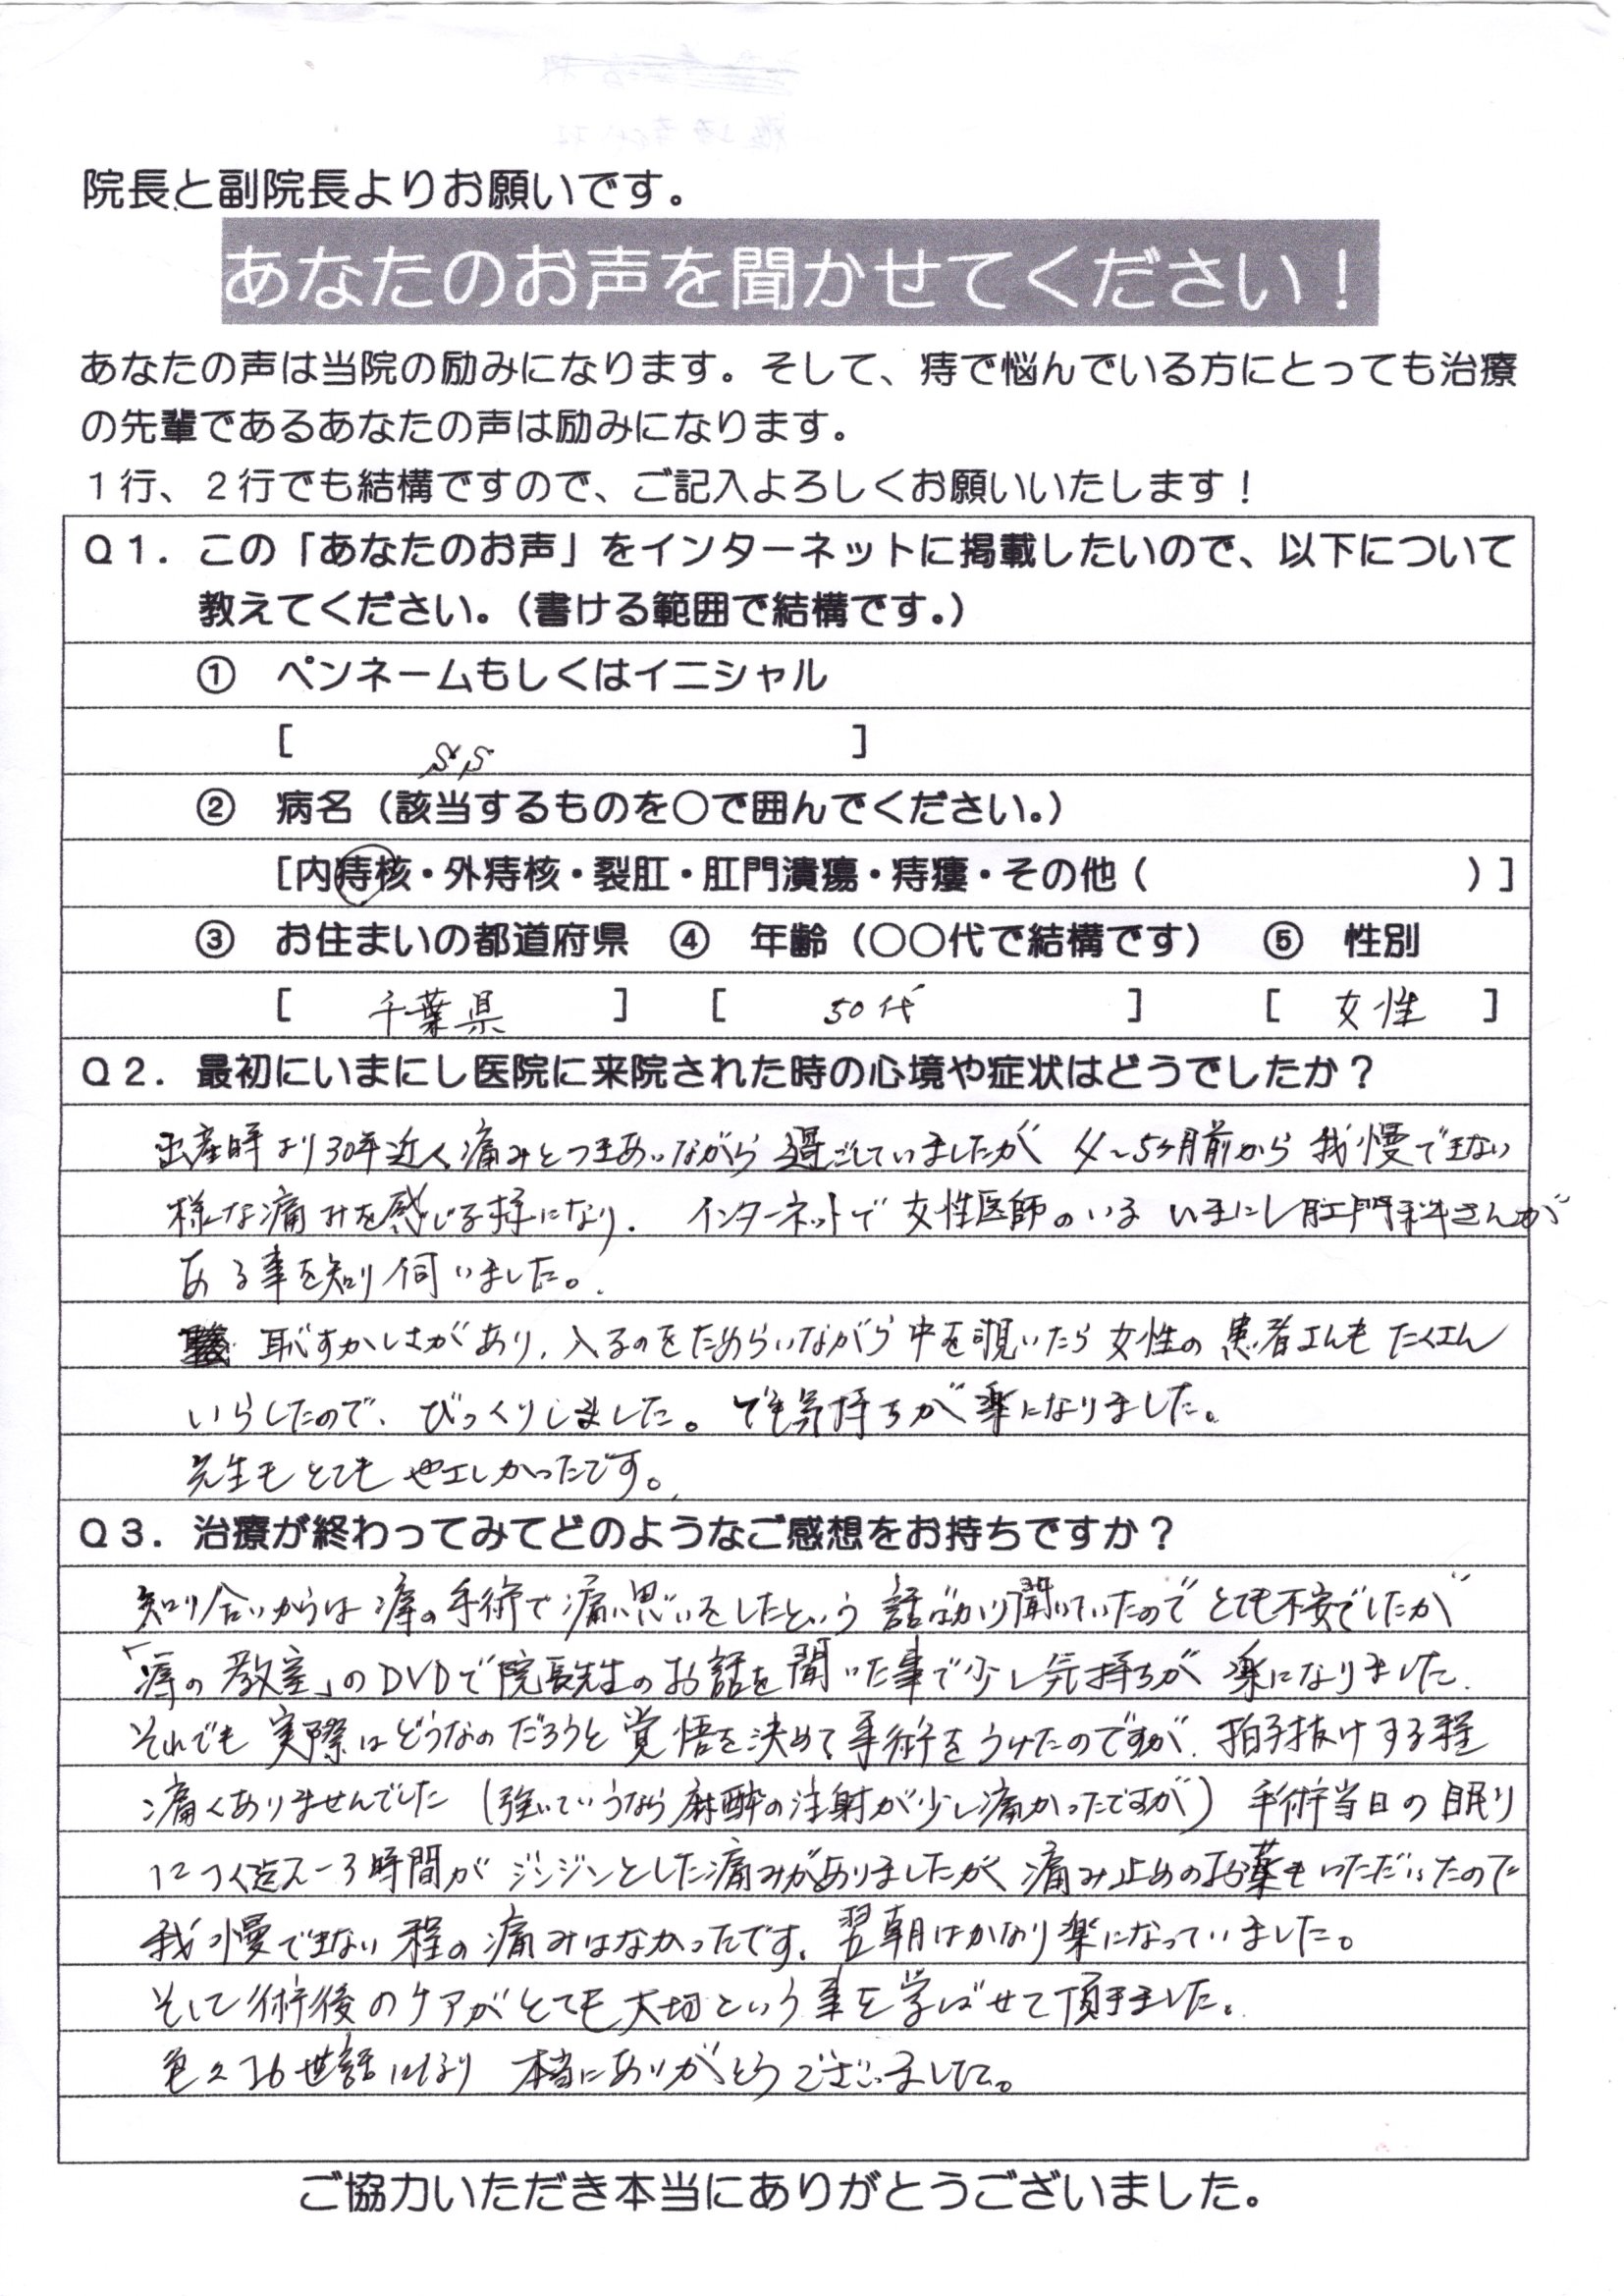 院長と副院長よりお願いです。
あなたのお声を聞かせてください！
あなたの声は当院の励みになります。そして、痔で悩んでいる方にとっても治療
の先輩であるあなたの声は励みになります。
１行、２行でも結構ですので、ご記入よろしくお願いいたします！
Ｑ１．この「あなたのお声」をインターネットに掲載したいので、以下について
教えてください。（書ける範囲で結構です。）
① ペンネームもしくはイニシャル
[ S.S ]
② 病名（該当するものを○で囲んでください。）
[内痔核・外痔核・裂肛・肛門潰瘍・痔瘻・その他（ ）]
③ お住まいの都道府県 ④ 年齢（○○代で結構です） ⑤ 性別
[ 千葉県 ] [ 50代 ] [ 女性 ]
Ｑ２．最初にいまにし医院に来院された時の心境や症状はどうでしたか？
出産時より30年近く痛みとつきあいながら過ごしていましたが 4～5ヶ月前から我慢できない
様な痛みを感じる様になり、インターネットで女性医師のいる いまにし肛門科さんが
ある事を知り伺いました。
恥ずかしさがあり、入るのをためらいながら中を覗いたら女性の患者さんもたくさん
いらしたので、びっくりしました。でも気持ちが楽になりました。
先生もとてもやさしかったです。
Ｑ３．治療が終わってみてどのようなご感想をお持ちですか？
知り合いからは痔の手術で痛い思いをしたという話ばかり聞いていたのでとても不安でしたが
「痔の教室」のDVDで院長先生のお話を聞いた事で少し気持ちが楽になりました。
それでも実際はどうなのだろうと覚悟を決めて手術をうけたのですが、拍子抜けする程
痛くありませんでした（強いていうなら麻酔の注射が少し痛かったですが）手術当日の眠り
につく迄2～3時間がジンジンとした痛みがありましたが、痛み止めのお薬もいただいたので
我慢できない程の痛みはなかったです。翌朝はかなり楽になっていました。
そして術後のケアがとても大切という事を学ばせて頂きました。
色々お世話になり 本当にありがとうございました。
ご協力いただき本当にありがとうございました。